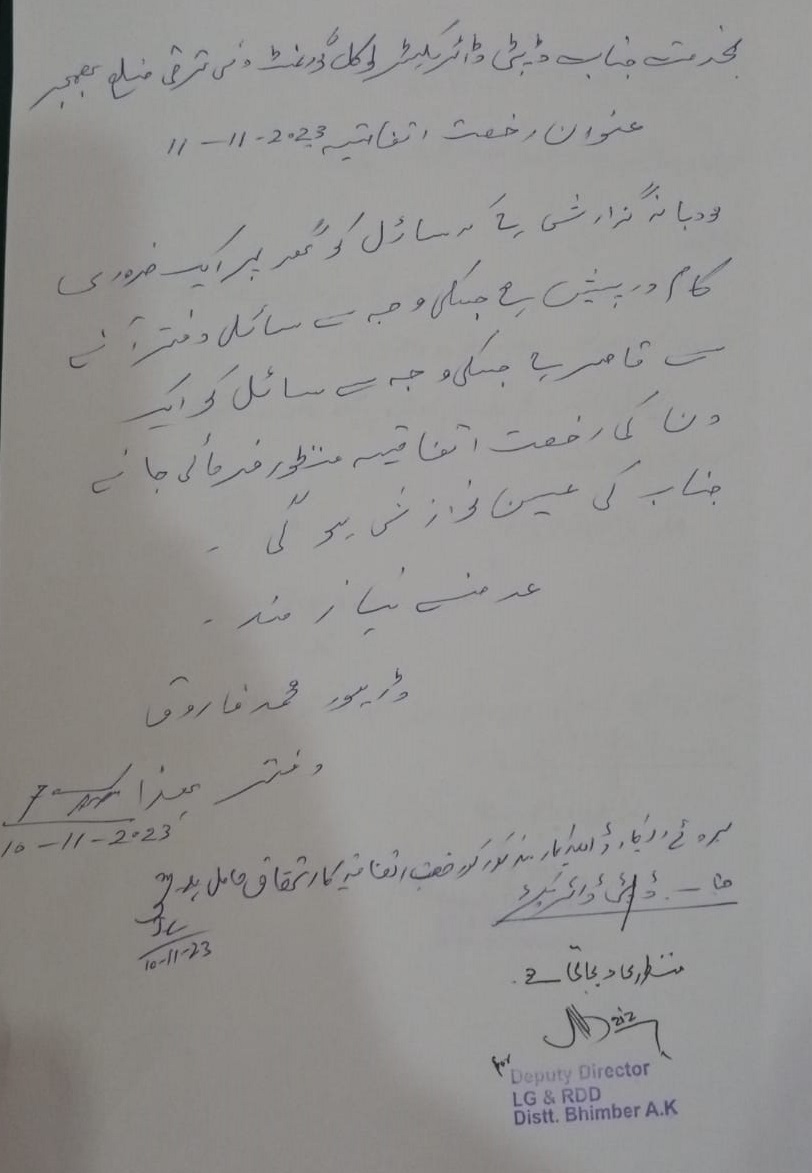 بخدمت جناب ڈپٹی ڈائریکٹر لوکل گورنمنٹ و دیہی ترقی ضلع بھمبر
عنوان رخصت اتفاقیہ 11-11-2023
مودبانہ گزارش ہے کہ سائل کو گھر پر ایک ضروری
کام درپیش ہے جسکی وجہ سے سائل دفتر آنے
سے قاصر ہے جسکی وجہ سے سائل کو ایک
دن کی رخصت اتفاقیہ منظور فرمائی جائے
جناب کی عین نوازش ہو گی ۔
عرضے نیاز مند ۔
ڈریور محمد فاروق
دفتر ھذا
10-11-2023
بروئے ریکارڈ اہلکار مذکور رخصت اتفاقیہ کا استحقاق حامل ہے
JC
10-11-23
جناب ڈپٹی ڈائریکٹر
منظوری دی جاتی ہے۔
for
Deputy Director
LG & RDD
Distt. Bhimber A.K